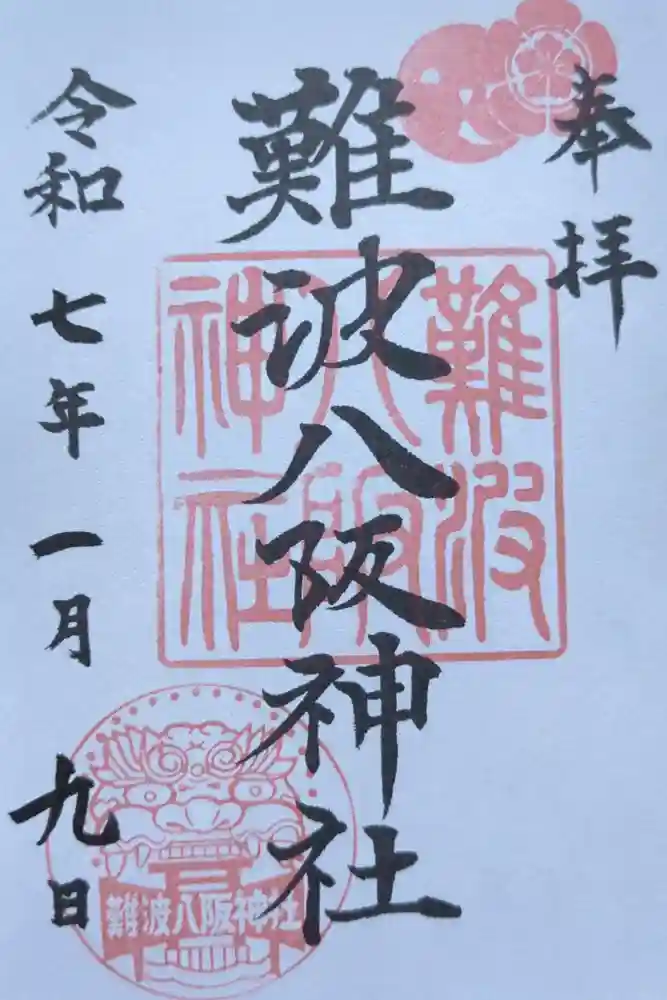 奉拝
難波八阪神社
難波
八阪
神社
令和七年一月九日
難波八阪神社